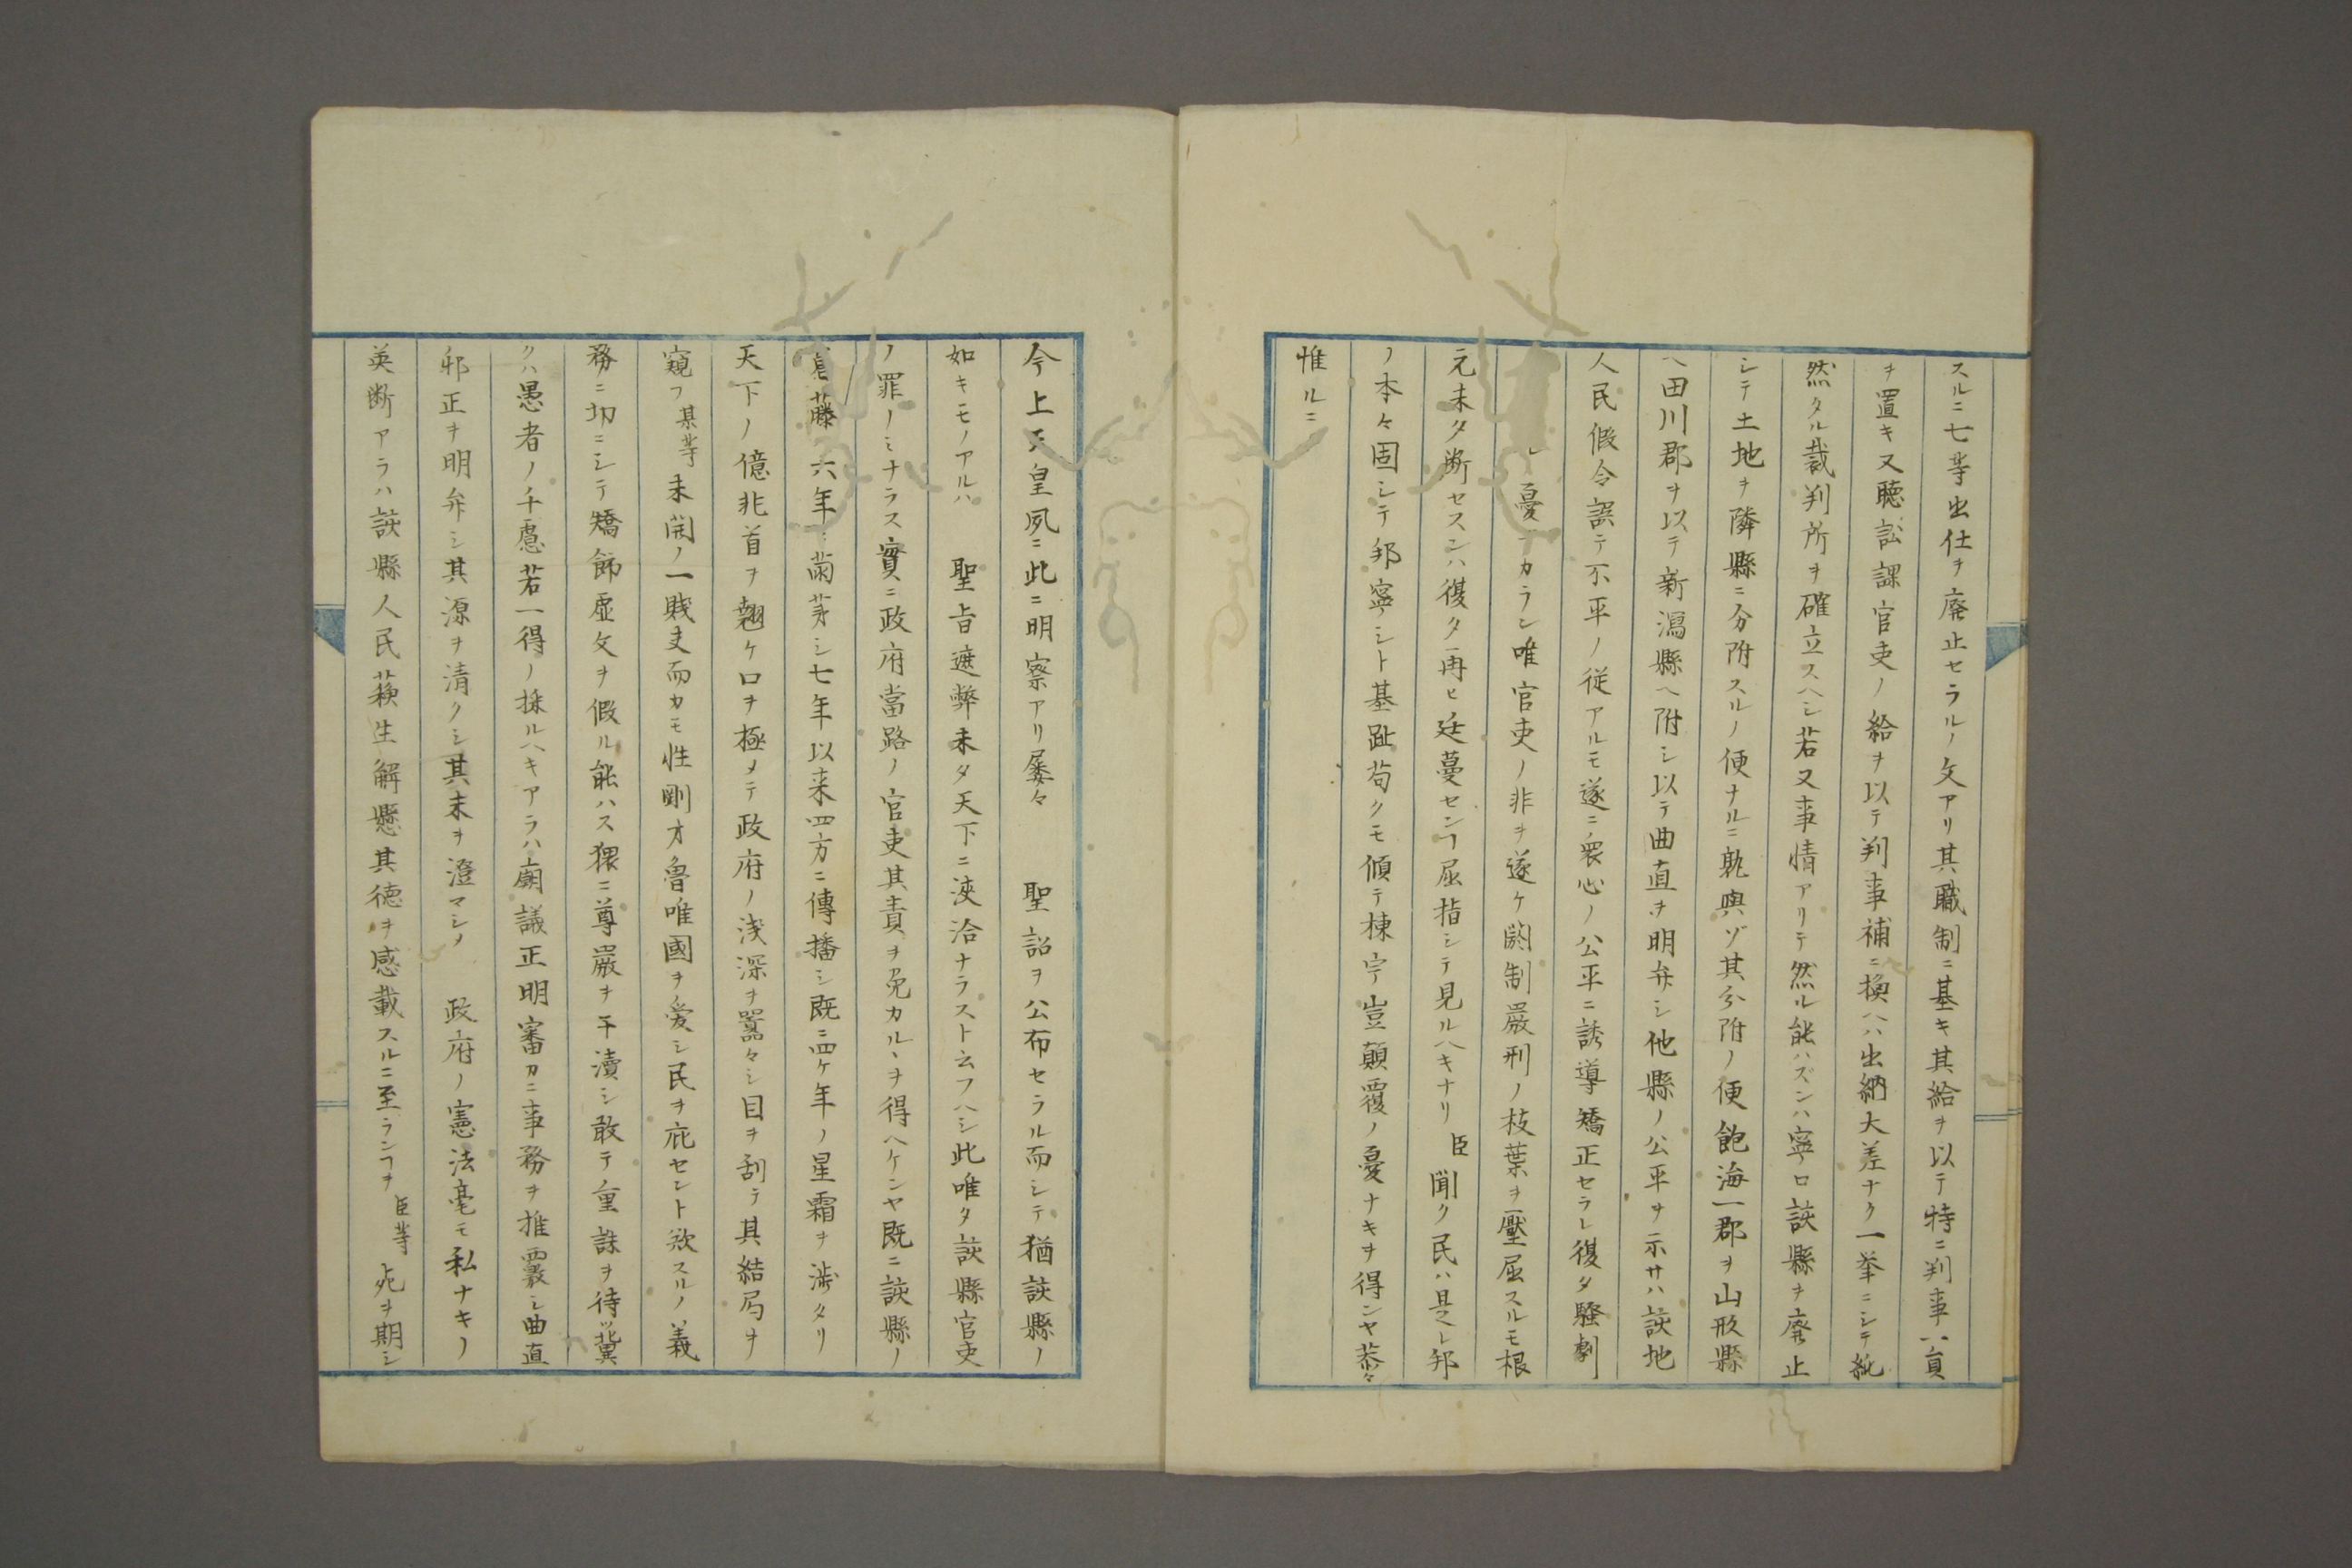 スルニ七等出仕ヲ廃止セラルノ文アリ其職制ニ基キ其給ヲ以テ特ニ判事一員
ヲ置キ又聴訟課官吏ノ給ヲ以テ判事補ニ換ヘハ出納大差ナク一挙ニシテ純
然タル裁判所ヲ確立スヘシ若又事情アリテ然ル能ハズンハ寧ロ該縣ヲ廃止
シテ土地ヲ隣縣ニ分附スルノ便ナルニ孰與ゾ其分附ノ便飽海一郡ヲ山形縣
ヘ田川郡ヲ以テ新潟縣ヘ附シ以テ曲直ヲ明弁シ他縣ノ公平ヲ示サハ該地
人民假令誤テ不平ノ従アルモ遂ニ衆心ノ公平ニ誘導矯正セラレ復タ騒劇
レ憂テカラン唯官吏ノ非ヲ遂ケ閼制嚴刑ノ枝葉ヲ壓屈スルモ根
元未タ断セスンハ復タ再ヒ延蔓センヿ屈指シテ見ルヘキナリ臣聞ク民ハ是レ邦
ノ本々固シテ邦寧シト基趾苟クモ傾テ棟宇豈顛覆ノ憂ナキヲ得ンヤ恭々
惟ルニ
今上天皇夙ニ此ニ明察アリ屡々 聖詔ヲ公布セラル而シテ猶該縣ノ
如キモノアルハ 聖旨遮弊未タ天下ニ浹洽ナラスト云フヘシ此唯タ該縣官吏
ノ罪ノミナラス實ニ政府當路ノ官吏其責ヲ免カルヽヲ得ヘケンヤ既ニ該縣ノ
葛藤六年ニ萠芽シ七年以来四方ニ傳播シ既ニ四ケ年ノ星霜ヲ渉タリ
天下ノ億兆首ヲ翹ケ口ヲ極メテ政府ノ浅深ヲ囂々シ目ヲ刮テ其結局ヲ
窺フ某等未開ノ一賎吏而カモ性剛才魯唯國ヲ爱シ民ヲ庇セント欲スルノ義
務ニ切ニシテ矯飾虚文ヲ假ル能ハス猥ニ尊嚴ヲ干瀆シ敢テ重誅ヲ待冀
クハ愚者ノ千慮若一得ノ採ルヘキアラハ廟議正明審カニ事務ヲ推覈シ曲直
邪正ヲ明弁シ其源ヲ清クシ其末ヲ澄マシメ 政府ノ憲法毫モ私ナキノ
英断アラハ該縣人民蘇生解懸其徳ヲ感載スルニ至ランヿヲ臣等死ヲ期シ